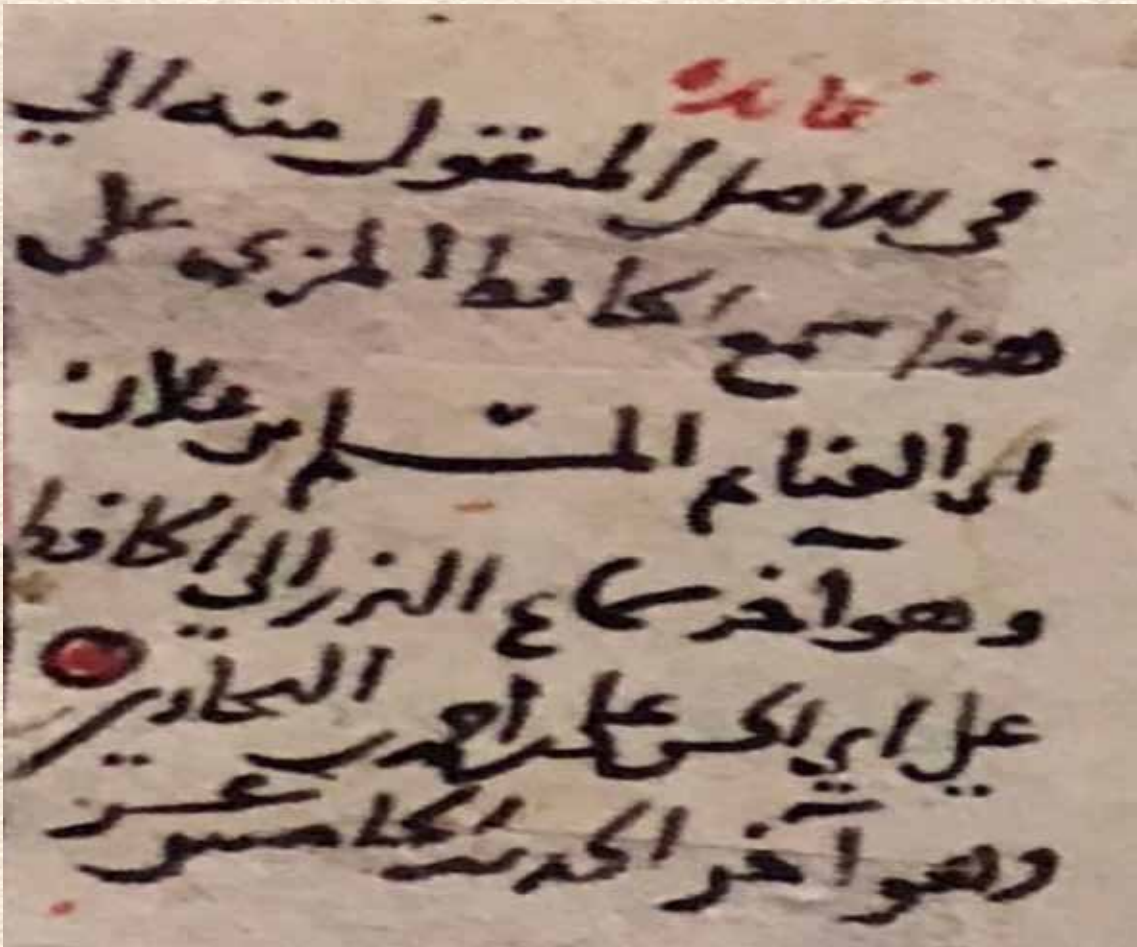 فائدة
في الاصل المنقول منه الي
هنا سمع الحافظ المزي علي
ابي الغنايم المسلم بن علان
وهو آخر سماع البرزالي الحافظ
علي ابي الحسن علي بن احمد بن البخاري
وهو آخر الحديث الخامس عشر